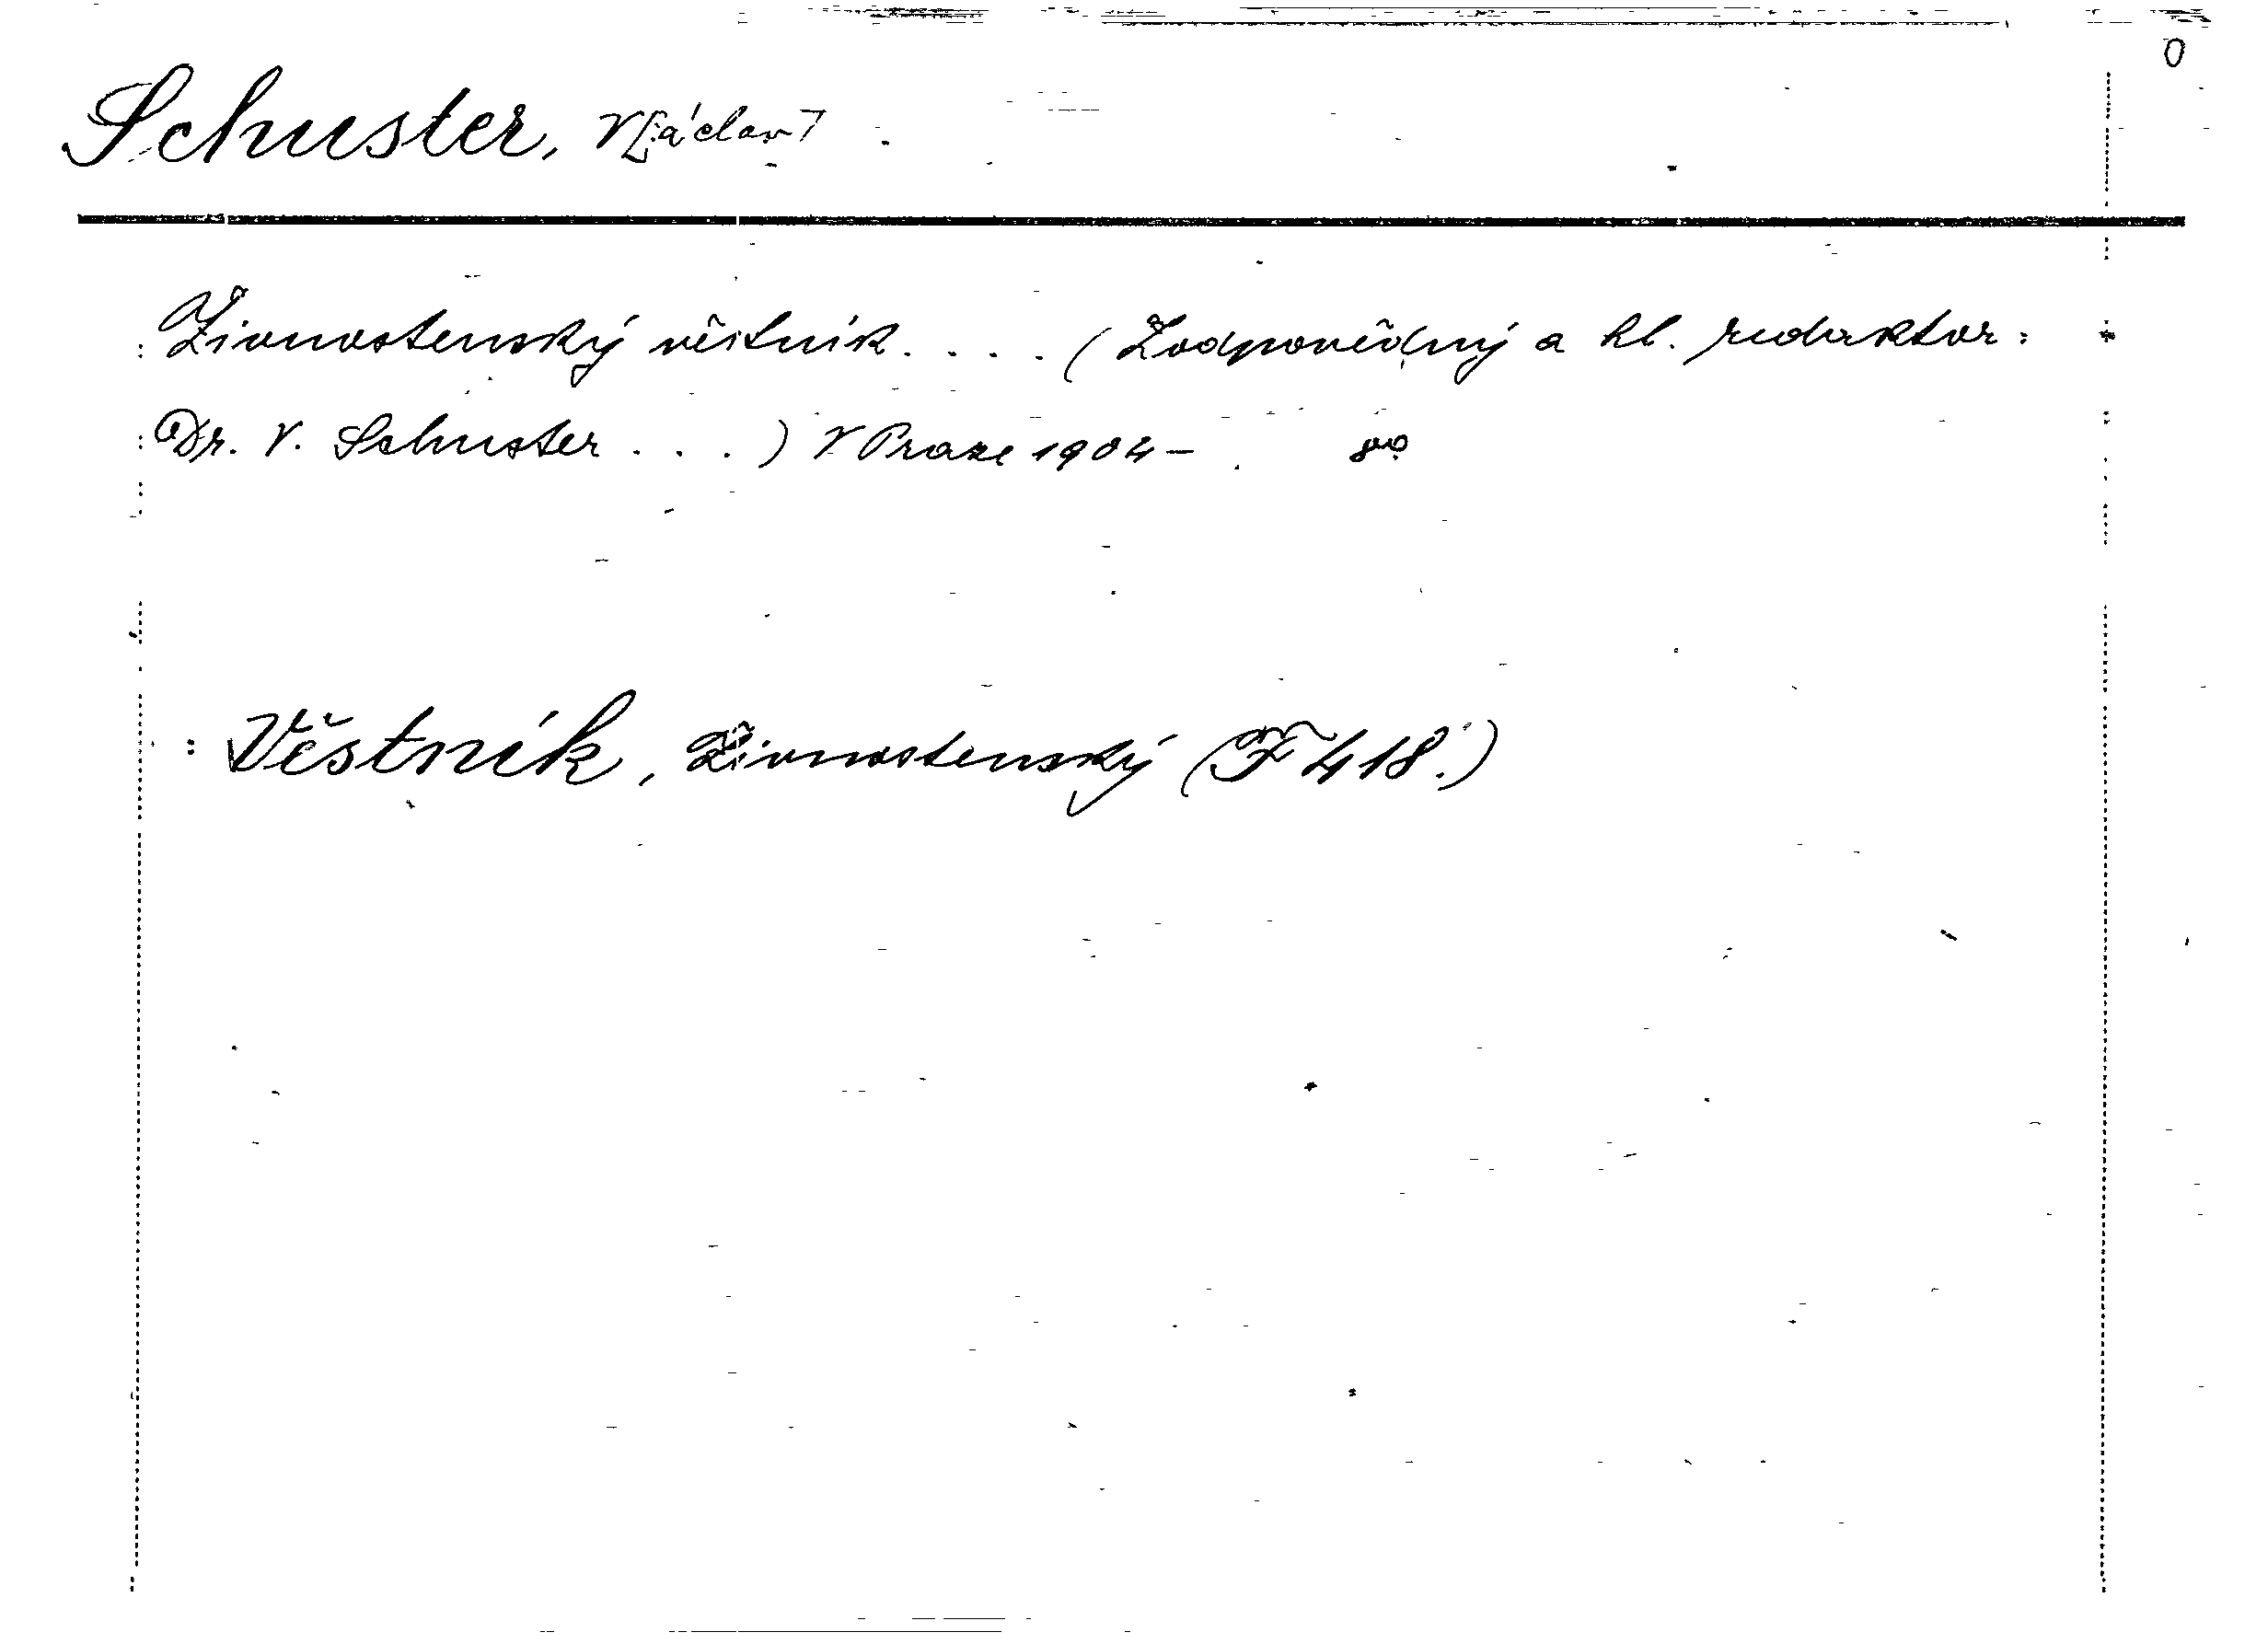 0
Schuster, V[áclav]
Živnostenský věstník. . . . (Zodpovědný a hl. redaktor:
Dr. V. Schuster . . . ) V Praze 1904– 8°
Věstník, Živnostenský (F 418.)